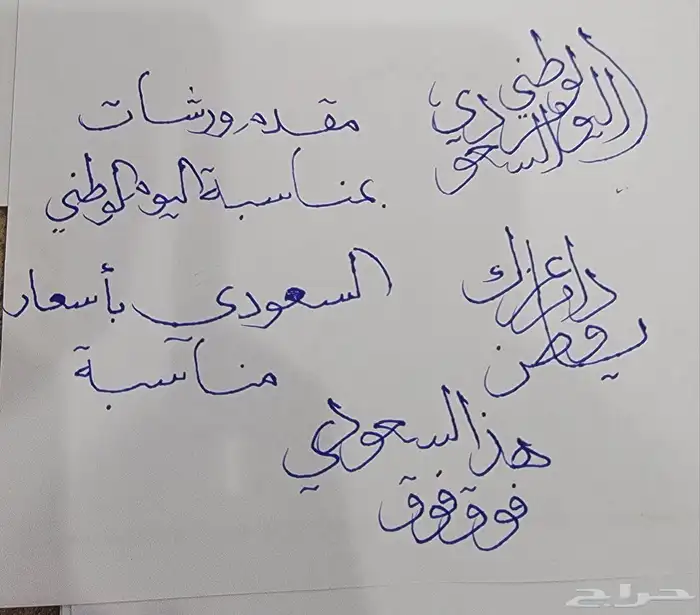 اليوم الوطني
السعودي
مقدم ورشات
بمناسبة اليوم الوطني
السعودي بأسعار
مناسبة
دام عزك
يا وطن
هذا السعودي
فوق فوق
حراج